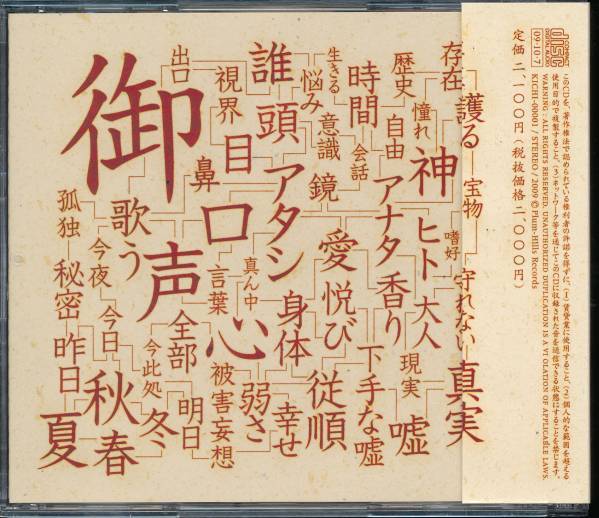 御
出口
視界
誰
頭
生きる
悩み
時間
歴史
存在
護る
目
意識
会話
自由
憧れ
神
宝物
鼻
口
アタシ
鏡
アナタ
ヒト
嗜好
守れない
孤独
歌う
声
言葉
真ん中
愛
悦び
香り
大人
今夜
秘密
今日
昨日
全部
心
身体
現実
真実
今此処
夏
秋
春
冬
明日
被害妄想
弱さ
幸せ
従順
下手な嘘
嘘
COMPACT
disc
DIGITAL AUDIO
09・10・7
定価 二、一〇〇円(税抜価格二、〇〇〇円)
このCDを、著作権法で認められている権利者の許諾を得ずに、(1)賃貸業に使用すること、(2)個人的な範囲を超える
使用目的で複製すること、(3)ネットワーク等を通じてこのCDに収録された音を送信できる状態にすることを禁じます。
WARNING : ALL RIGHTS RESERVED. UNAUTHORIZED DUPLICATION IS A VI OLATION OF APPLICABLE LAWS.
KICHI-00001 / STEREO / 2009 ℗ Plum-Hills Records